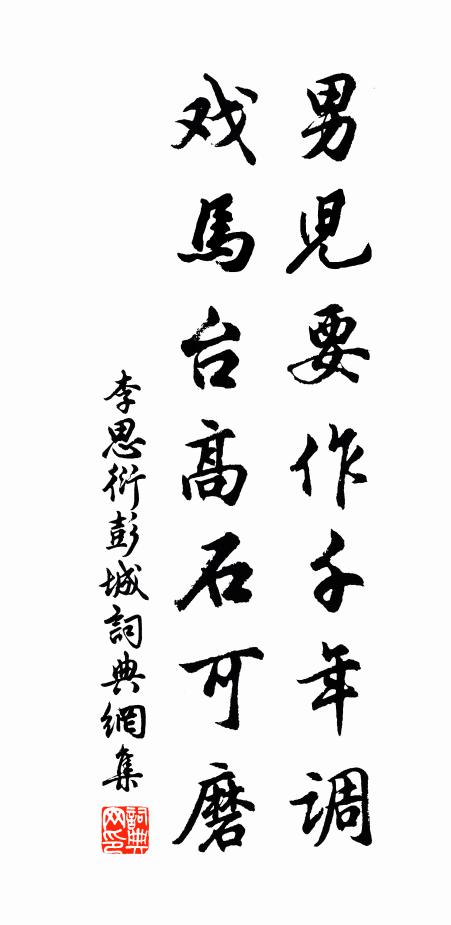 男兒要作千年调
戏馬台高石可磨
李思衍彭城詞典網集
詞典网印